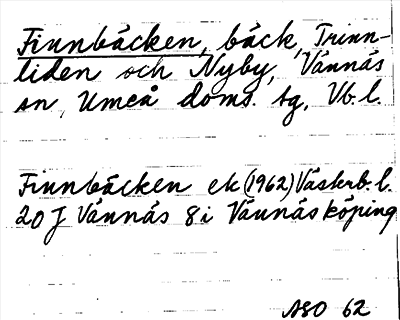 Finnbäcken, bäck, Trinn-
liden och Nyby, Vännäs
sn, Umeå doms. tg, Vb. l.
Finnbäcken ek (1962) Västerb. l.
20 J Vännäs 8 i Vännäsköping
ASO 62